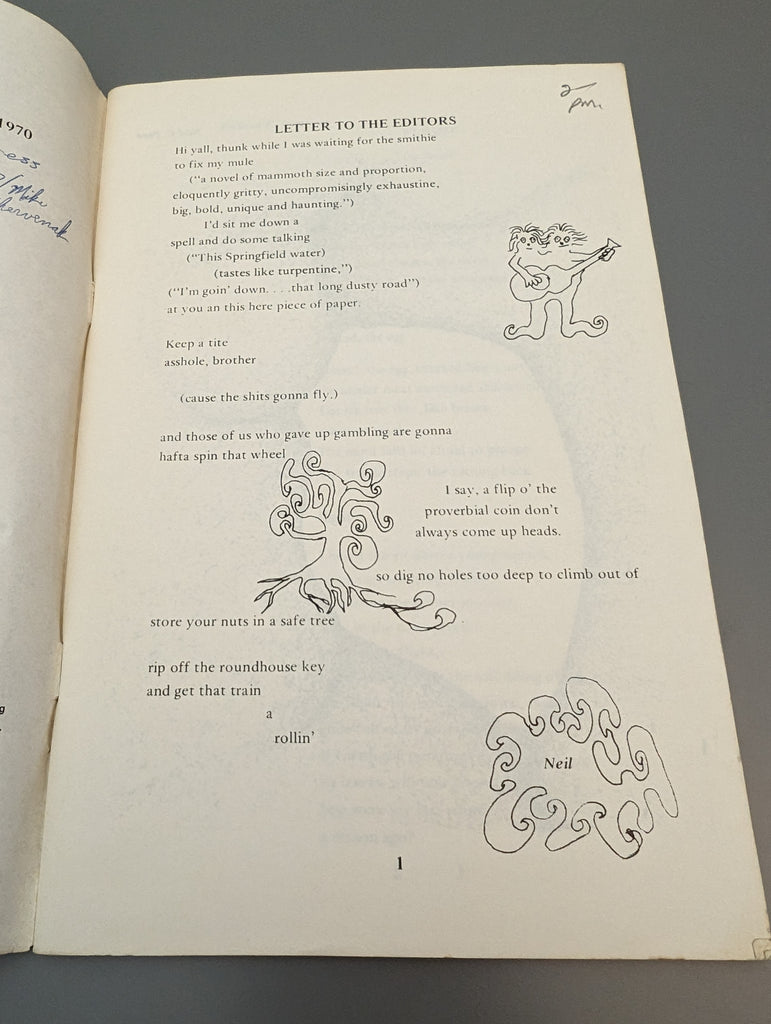 1970
ess
/Mike
ervenak
g
2
pm.
LETTER TO THE EDITORS
Hi yall, thunk while I was waiting for the smithie
to fix my mule
("a novel of mammoth size and proportion,
eloquently gritty, uncompromisingly exhaustine,
big, bold, unique and haunting.")
I'd sit me down a
spell and do some talking
("This Springfield water)
(tastes like turpentine,")
("I'm goin' down. . . .that long dusty road")
at you an this here piece of paper.
Keep a tite
asshole, brother
(cause the shits gonna fly.)
and those of us who gave up gambling are gonna
hafta spin that wheel
I say, a flip o' the
proverbial coin don't
always come up heads.
so dig no holes too deep to climb out of
store your nuts in a safe tree
rip off the roundhouse key
and get that train
a
rollin'
Neil
1